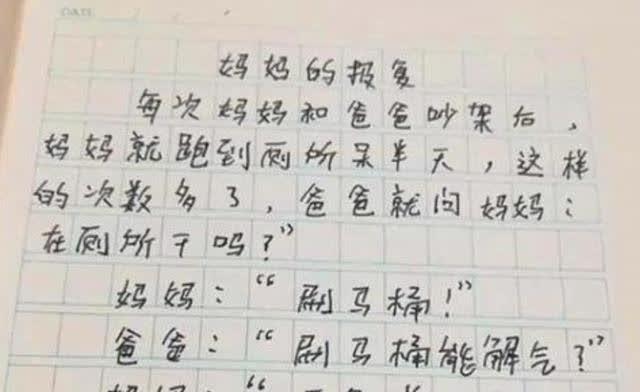 DATE
妈妈的报复
每次妈妈和爸爸吵架后，
妈妈就跑到厕所呆半天，这样
的次数多了，爸爸就问妈妈：
在厕所干吗？”
妈妈：“刷马桶！”
爸爸：“刷马桶能解气？”